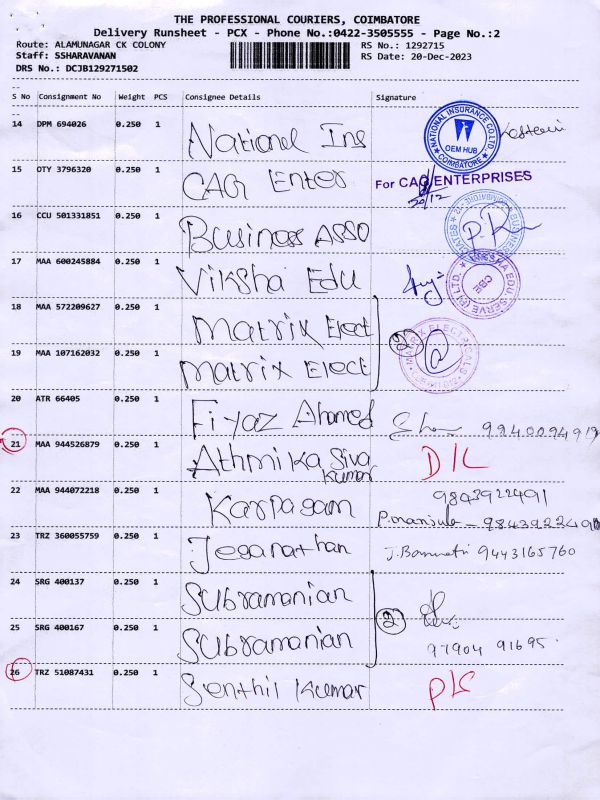 THE PROFESSIONAL COURIERS, COIMBATORE
Delivery Runsheet - PCX - Phone No.:0422-3505555 - Page No.:2
Route: ALAMUNAGAR CK COLONY RS No.: 1292715
Staff: SSHARAVANAN RS Date: 20-Dec-2023
DRS No.: DCJB129271502
S No Consignment No Weight PCS Consignee Details Signature
14 DPM 694026 0.250 1 National Ins NATIONAL INSURANCE CO.LTD. OEM HUB COIMBATORE
15 OTY 3796320 0.250 1 CAG Enter For CAG ENTERPRISES
20/12
16 CCU 501331851 0.250 1 Business ASSO
17 MAA 600245884 0.250 1 Viksha Edu VIKSHA EDU SERVE (P) LTD. CBE
18 MAA 572209627 0.250 1 Matrix Elect 2 MATRIX ELECTRICALS
19 MAA 107162032 0.250 1 Matrix Elect
20 ATR 66405 0.250 1 Fiyaz Ahamed
21 MAA 944526879 0.250 1 Athmika Siva Kumar D/L
22 MAA 944072218 0.250 1 Karpagam 9843922491
P.manjula -
23 TRZ 360055759 0.250 1 Jeganathan 9443165760
24 SRG 400137 0.250 1 Subramanian 2
25 SRG 400167 0.250 1 Subramanian 97904 91695
26 TRZ 51087431 0.250 1 Senthil Kumar